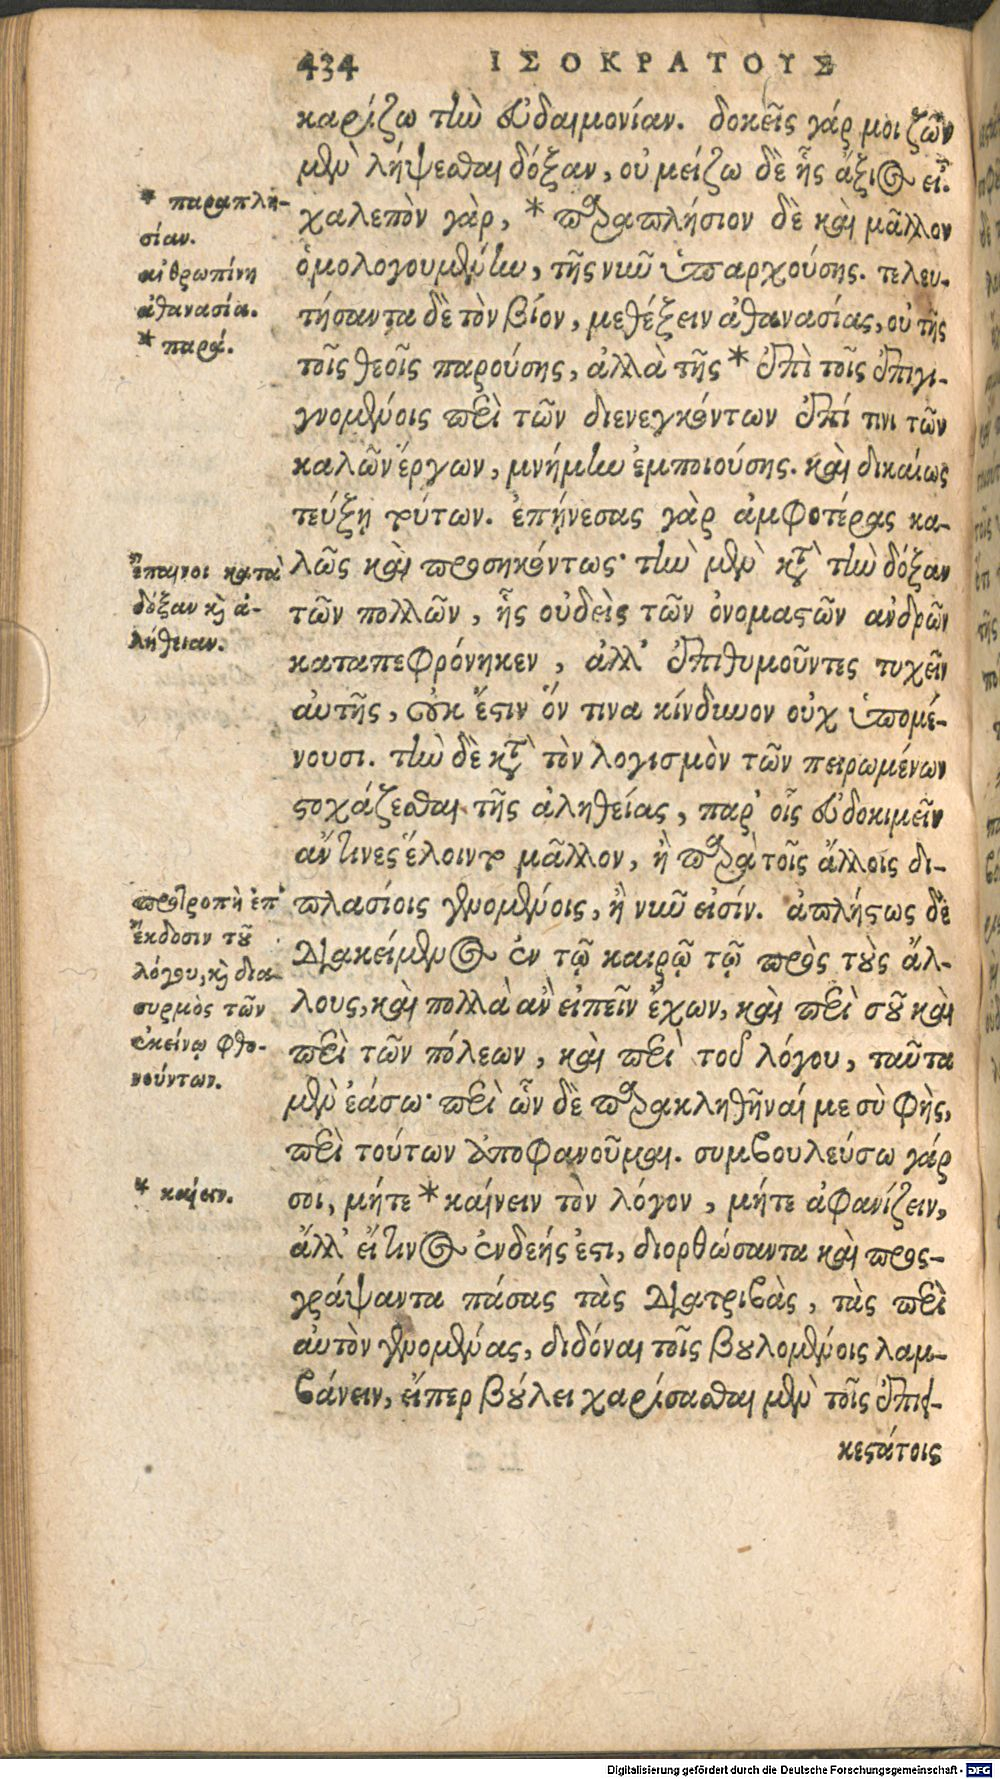 434 ΙΣΟΚΡΑΤΟΥΣ
καρίζω τὴν εὐδαιμονίαν. δοκεῖς γάρ μοι ζῶν
μὲν λήψεσθαι δόξαν, οὐ μείζω δὲ ἧς ἄξιος εἶ.
χαλεπὸν γὰρ, * παραπλήσιον δὲ καὶ μᾶλλον
ὁμολογουμένην, τῆς νῦν ὑπαρχούσης. τελευ-
τήσαντα δὲ τὸν βίον, μεθέξειν ἀθανασίας, οὐ τῆς
τοῖς θεοῖς παρούσης, ἀλλὰ τῆς * ἐπὶ τοῖς ἐπιγι-
γνομένοις περὶ τῶν διενεγκόντων ἐπί τινι τῶν
καλῶν ἔργων, μνήμην ἐμποιούσης. καὶ δικαίως
τεύξῃ τούτων. ἐπῄνεσας γὰρ ἀμφοτέρας κα-
λῶς καὶ προσηκόντως· τὴν μὲν κατὰ τὴν δόξαν
τῶν πολλῶν, ἧς οὐδεὶς τῶν ὀνομαστῶν ἀνδρῶν
καταπεφρόνηκεν, ἀλλ' ἐπιθυμοῦντες τυχεῖν
αὐτῆς, οὐκ ἔστιν ὅν τινα κίνδυνον οὐχ ὑπομέ-
νουσι. τὴν δὲ κατὰ τὸν λογισμὸν τῶν πειρωμένων
στοχάζεσθαι τῆς ἀληθείας, παρ' οἷς εὐδοκιμεῖν
ἄν τινες ἕλοιντο μᾶλλον, ἢ παρὰ τοῖς ἄλλοις δι-
πλασίοις γενομένοις, ἢ νῦν εἰσίν. ἀπλήστως δὲ
διακείμενος ἐν τῷ καιρῷ τῷ πρὸς τοὺς ἄλ-
λους, καὶ πολλὰ ἂν εἰπεῖν ἔχων, καὶ περὶ σοῦ καὶ
περὶ τῶν πόλεων, καὶ περὶ τοῦ λόγου, ταῦτα
μὲν ἐάσω· περὶ ὧν δὲ παρακληθῆναί με σὺ φῂς,
περὶ τούτων ἀποφανοῦμαι. συμβουλεύσω γάρ
σοι, μήτε * καίνειν τὸν λόγον, μήτε ἀφανίζειν,
ἀλλ' εἴ τινος ἐνδεής ἐστι, διορθώσαντα καὶ προς-
γράψαντα πάσας τὰς διατριβὰς, τὰς περὶ
αὐτὸν γενομένας, διδόναι τοῖς βουλομένοις λαμ-
βάνειν, εἴπερ βούλει χαρίσασθαι μὲν τοῖς ἐπιει-
κεστάτοις
* παραπλη-
σίαν.
ἀνθρωπίνη
ἀθανασία.
* παρά.
Ἔπαινοι κατὰ
δόξαν καὶ ἀ-
λήθειαν.
προτροπὴ ἐπ'
ἔκδοσιν τοῦ
λόγου, καὶ δια-
συρμὸς τῶν
ἐκείνῳ φθο-
νούντων.
* καίειν.
Digitalisierung gefördert durch die Deutsche Forschungsgemeinschaft - DFG